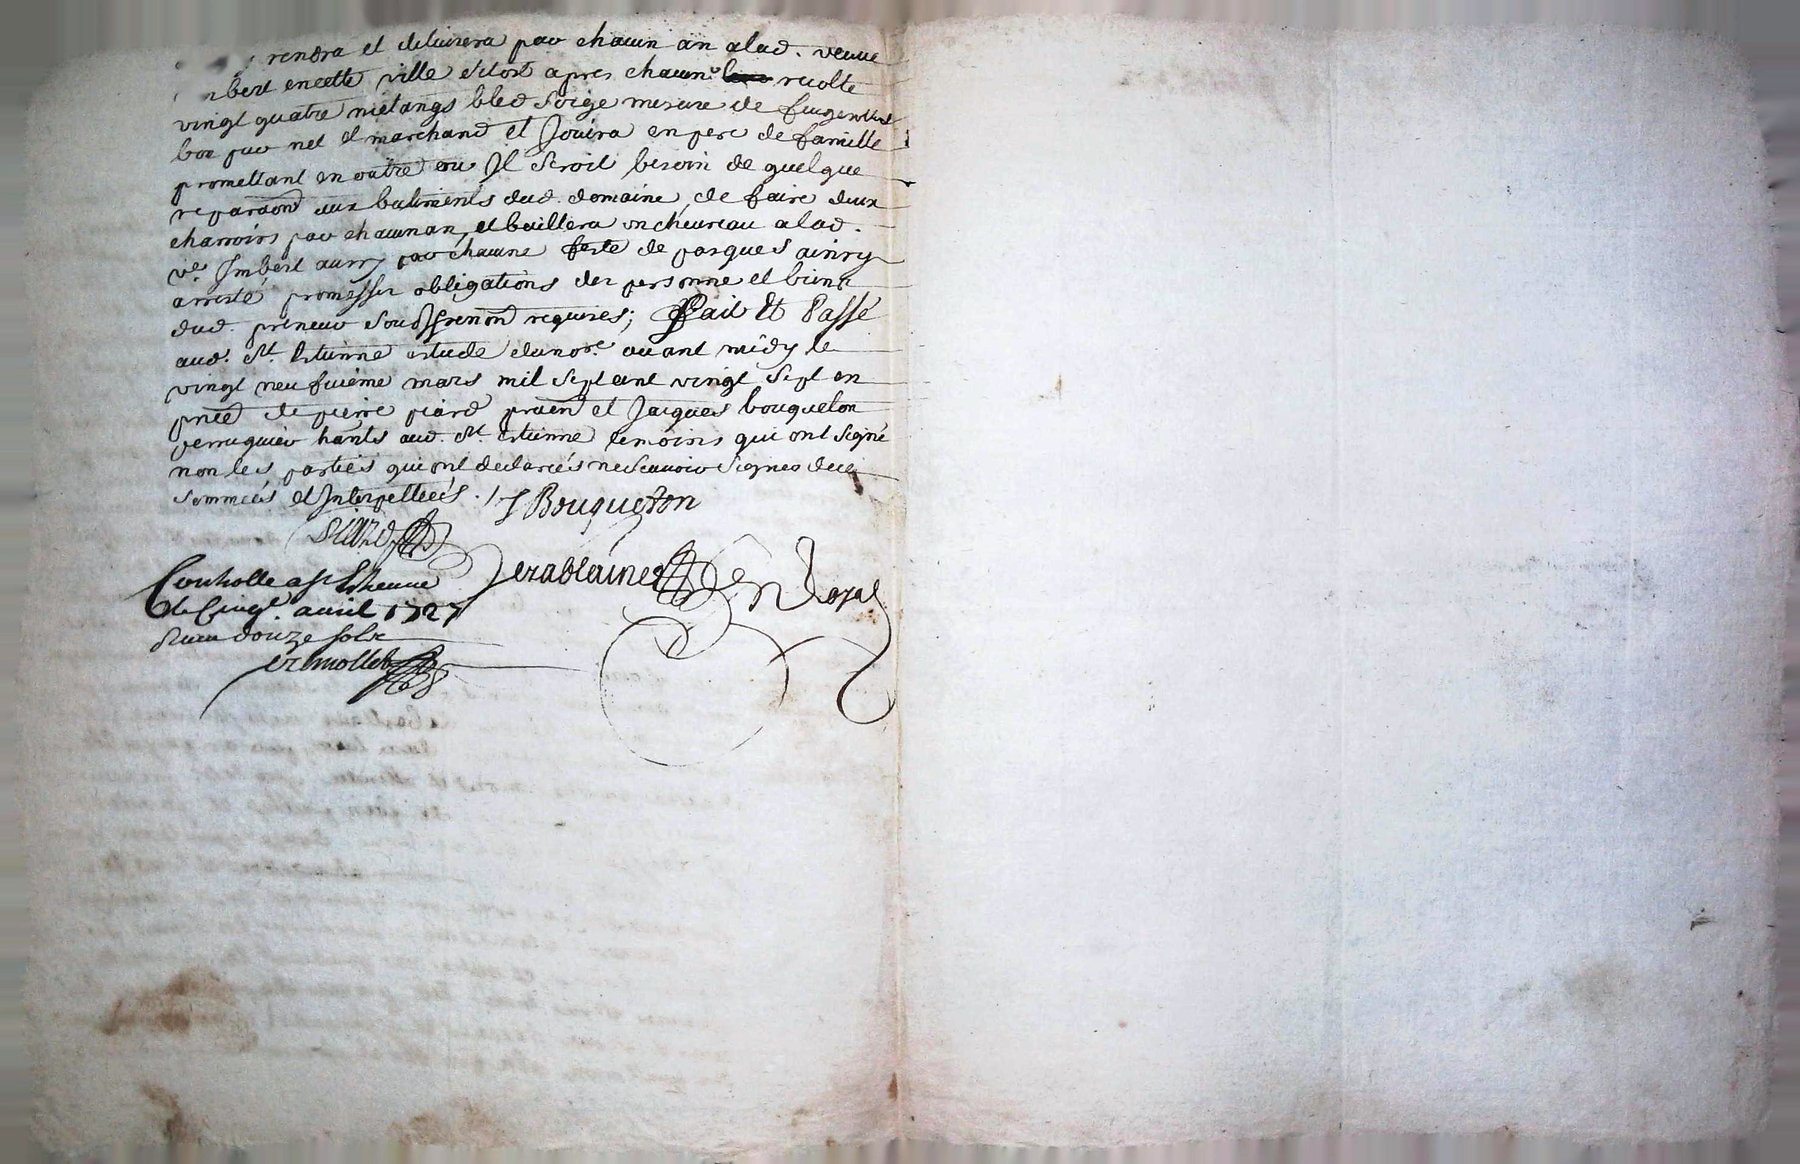 rendra et delivrera par chacun an alad. veuve
mbert en cette ville sitost apres chacune recolte
vingt quatre métangs bled soige mesure de
bon pur net et marchand et Jouira en pere de famille
promettant en outre ou Il seroit besoin de quelque
reparaon aux batiments dud. domaine, de faire deux
charrois par chacun an, et baillera un chevreau a lad.
ve. Imbert aussy par chacune feste de pasques ainsy
arresté, promesses obligations des personne et biens
dud. preneur requises; Fait Et Passé
aud. St. Estienne estude dunore. avant midy le
vingt neufvième mars mil sept cent vingt sept en
pnce de pierre piard pnaen et Jacques bouqueton
perruquier hants aud. St. Estienne temoins qui ont signé
non les parties qui ont declareés ne scavoir signer dece
Sommeés et Interpelleés. / J Bouqueton
PIARD
Jerablaine Nre Royal
Controlle a St Etienne
le cinqe. avril 1727
Receu douze sols